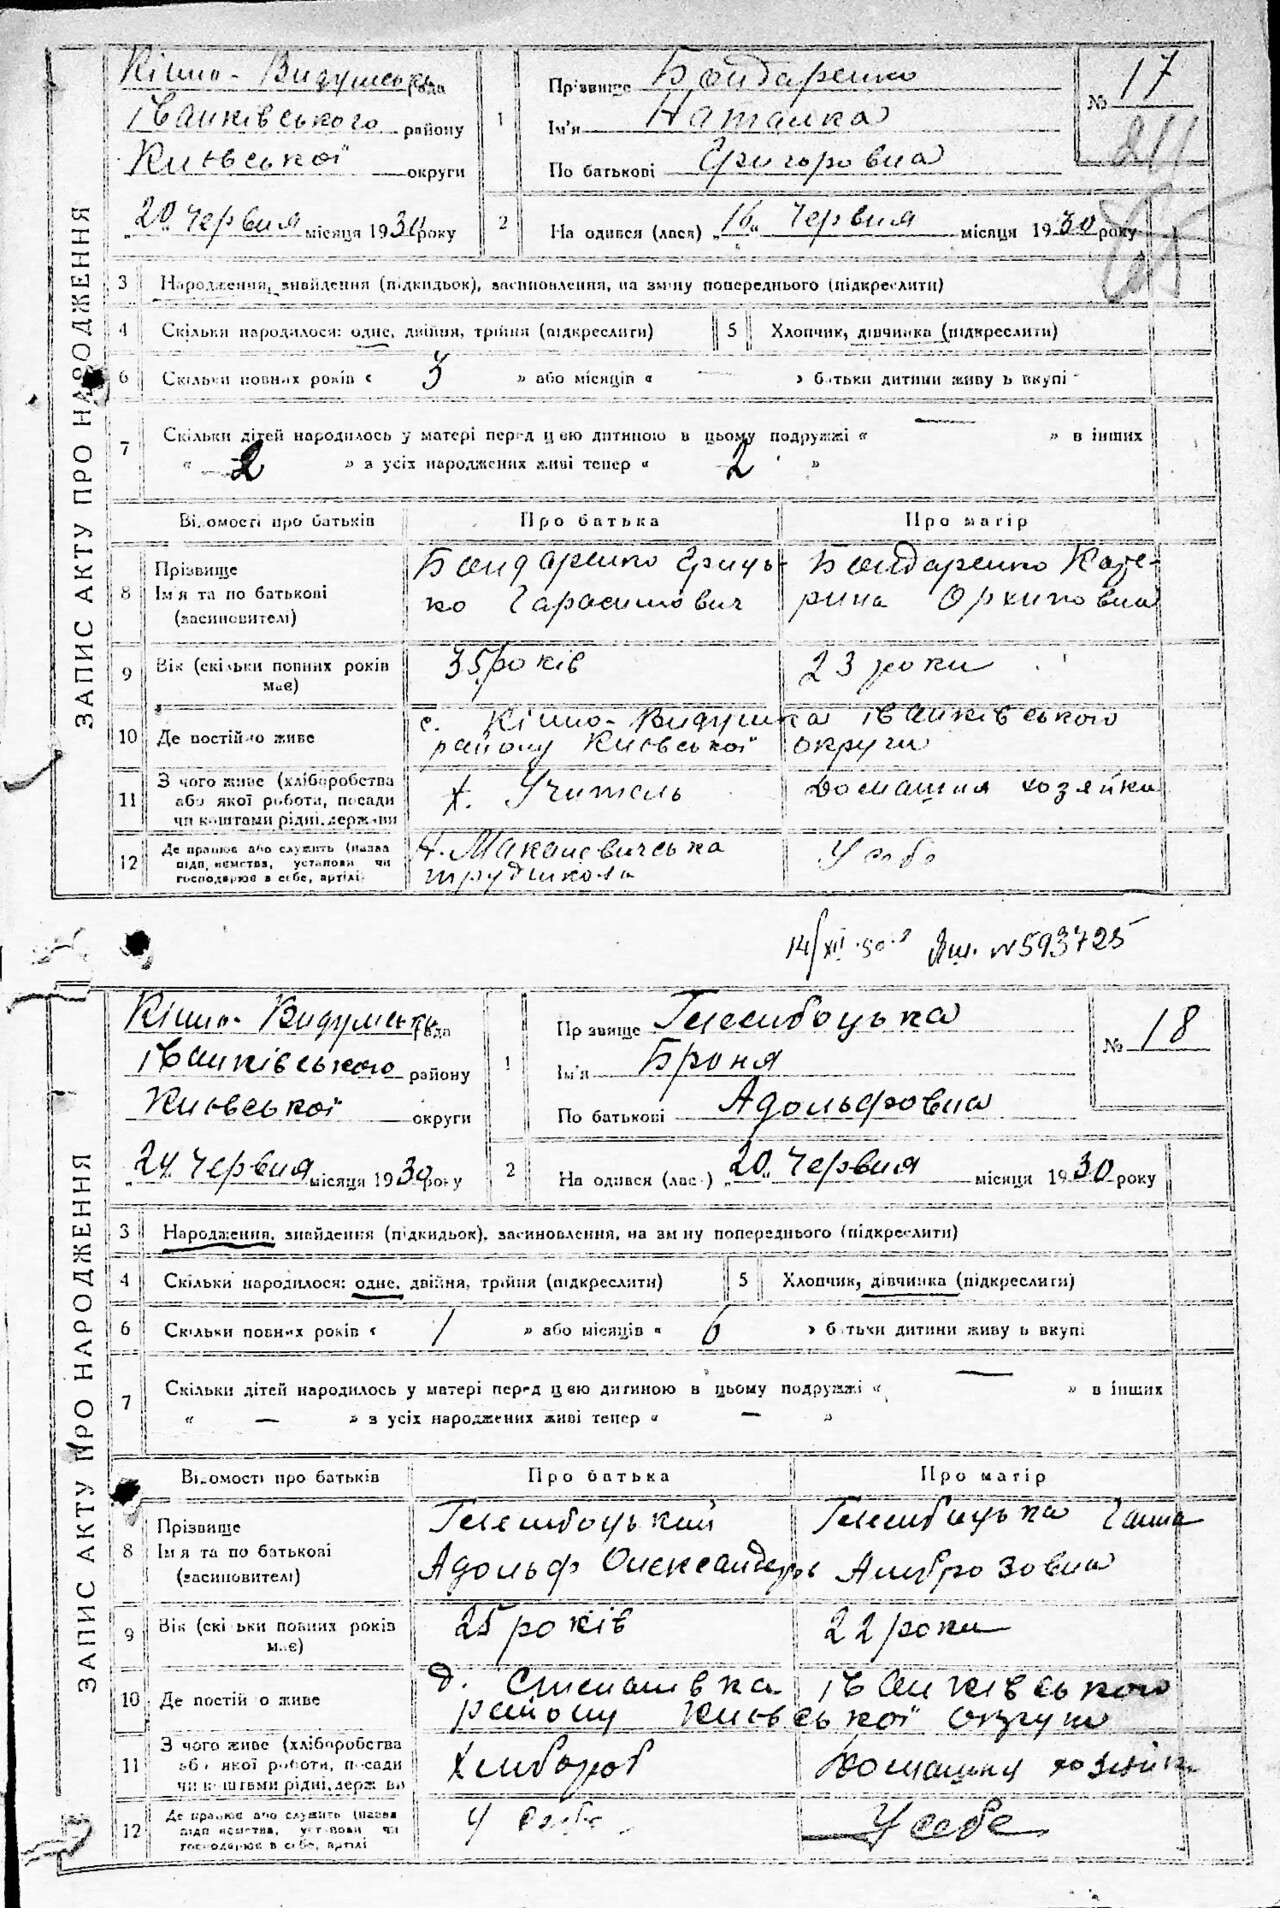 ЗАПИС АКТУ ПРО НАРОДЖЕННЯ
Кішно-Видумська рада
Іванківського району
Київської округи
„20“ Червня місяця 1930 року
1
Прізвище Бондаренко
Ім'я Наталка
По батькові Григоровна
№ 17
2 На одився (лася) „16“ Червня місяця 1930 року
3 Народження, знайдення (підкидьок), засиновлення, на зміну попереднього (підкреслити)
4 Скільки народилося: одне, двійня, трійня (підкреслити) 5 Хлопчик, дівчинка (підкреслити)
6 Скільки повних років « 3 » або місяців « — » батьки дитини живу ь вкупі
7 Скільки дітей народилось у матері перед цею дитиною в цьому подружжі « — » в інших
« 2 » з усіх народжених живі тепер « 2 »
Відомості про батьків Про батька Про матір
8 Прізвище Ім'я та по батькові (засиновителі) Бондаренко Гриць- Бондаренко Кате-
ко Гарасимович рина Орхиповна
9 Вік (скільки повних років має) 35 років 23 роки
10 Де постійно живе с. Кішно-Видумка Іванківського
району Київської округи
11 З чого живе (хліборобства або якої роботи, посади чи коштами рідні, держави х. Учитель Домашня хозяйка
12 Де працює або служить (назва підп иємства, установи чи господарює в себе, артілі
трудшкола У себе
14/XII-50 № 593725
ЗАПИС АКТУ ПРО НАРОДЖЕННЯ
Кішно-Видумська рада
Іванківського району
Київської округи
„24“ Червня місяця 1930 року
1
Пр звище Глембоцька
Ім'я Броня
По батькові Адольфовна
№ 18
2 На одився (лас ) „20“ Червня місяця 1930 року
3 Народження, знайдення (підкидьок), засиновлення, на зм ну попереднього (підкреслити)
4 Скільки народилося: одне, двійня, трійня (підкреслити) 5 Хлопчик, дівчинка (підкреслити)
6 Скільки повних років « 1 » або місяців « 6 » батьки дитини живу ь вкупі
7 Скільки дітей народилось у матері перед цею дитиною в цьому подружжі « — » в інших
« — » з усіх народжених живі тепер « — »
Відомості про батьків Про батька Про матір
8 Прізвище Ім'я та по батькові (засиновителі) Глембоцький Глембоцька Ганна
Адольф Олександерів Амброзовна
9 Вік (скі ьки повних років має) 25 років 22 роки
10 Де постій о живе Іванківського
району Київської округи
11 З чого живе (хліборобства або якої роботи, посади чи коштами рідні, держ ви Хлибороб Домашня хозяйка
12 Де працює або служить (назва підп иємства, установи чи господарює в себе, артілі У себе У себе